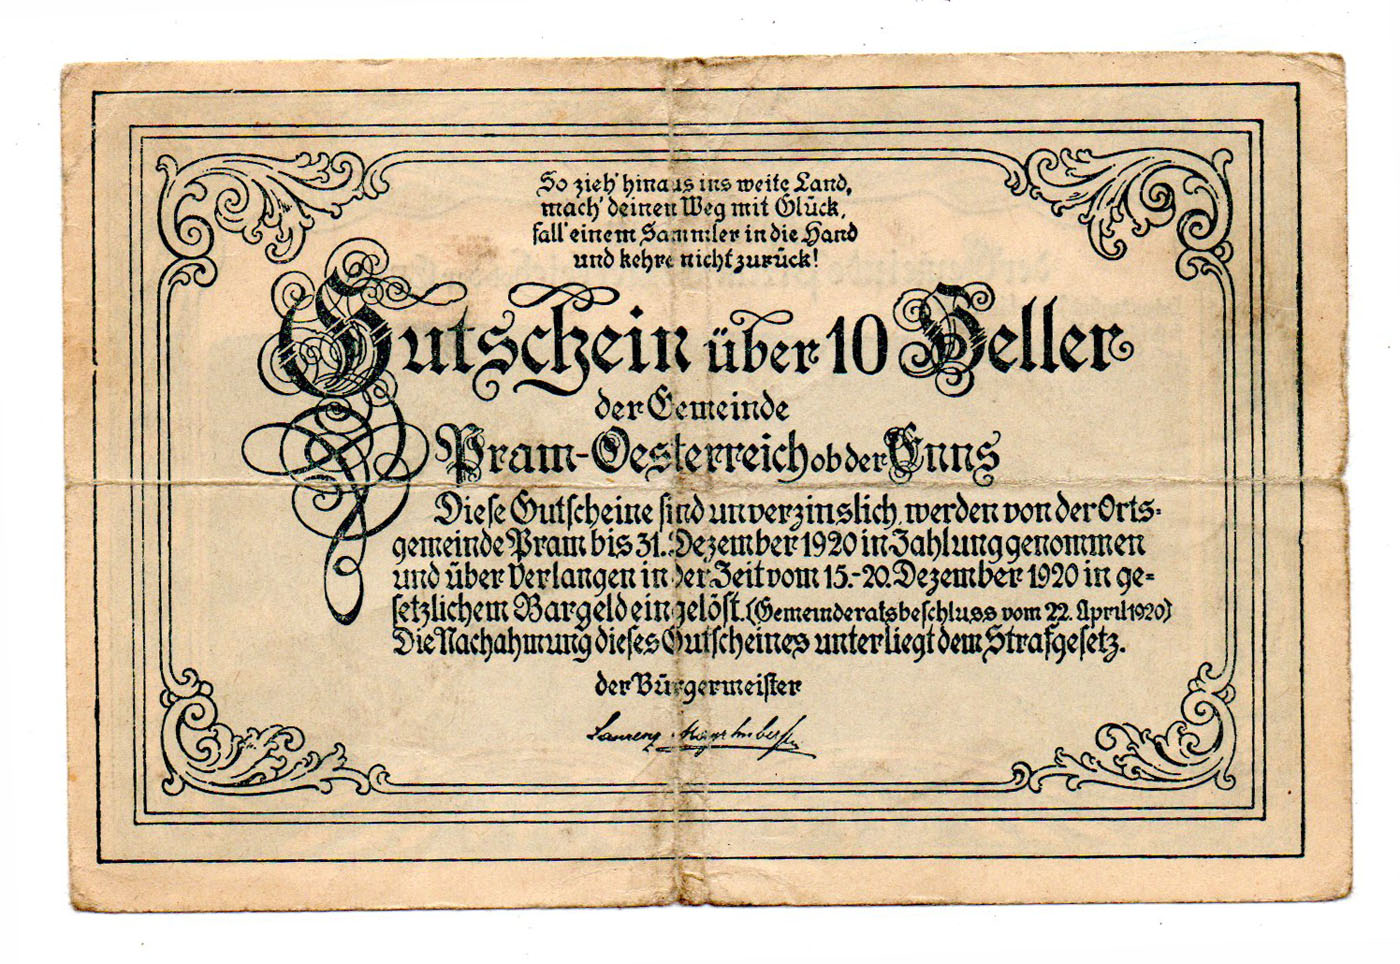 So zieh' hinaus ins weite Land,
mach' deinen Weg mit Glück,
fall' einem Sammler in die Hand
und kehre nicht zurück!
Gutschein über 10 Heller
der Gemeinde
Pram-Oesterreich ob der Enns
Diese Gutscheine sind unverzinslich, werden von der Orts-
gemeinde Pram bis 31. Dezember 1920 in Zahlung genommen
und über Verlangen in der Zeit vom 15.-20. Dezember 1920 in ge-
setzlichem Bargeld eingelöst. (Gemeinderatsbeschluss vom 22. April 1920)
Die Nachahmung dieses Gutscheines unterliegt dem Strafgesetz.
der Bürgermeister